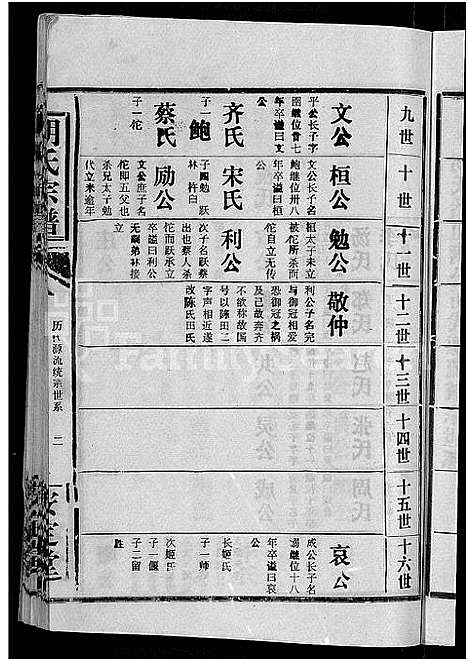 九世
文公
平公长子名
圉继位廿七
年卒谥曰文
公
齐氏
子一 鲍
蔡氏
子一 佗
十世
桓公
文公长子名
鲍继位卅八
年卒谥曰桓
公
宋氏
子四 勉 跃
林 杵臼
励公
文公庶子名
佗即五父也
杀兄太子勉
代立来逾年
十一世
勉公
桓太子未立
被佗所杀而
佗自立无传
利公
次子名跃蔡
出也蔡人杀
佗而跃承立
卒谥曰利公
无嗣弟林接
立
十二世
敬仲
利公子名完
与御冠相爱
恐御冠之祸
及己故奔齐
不欲称故国
号以陈田二
字声相近遂
改陈氏田氏
十三世
十四世
十五世
十六世
哀公
成公长子名
溺继位十八
年卒谥曰哀
公
长姬氏
子一 师
次姬氏
子二 偃
子二 留
胜
氏宗谱
历代源流统宗世系 二
安定堂